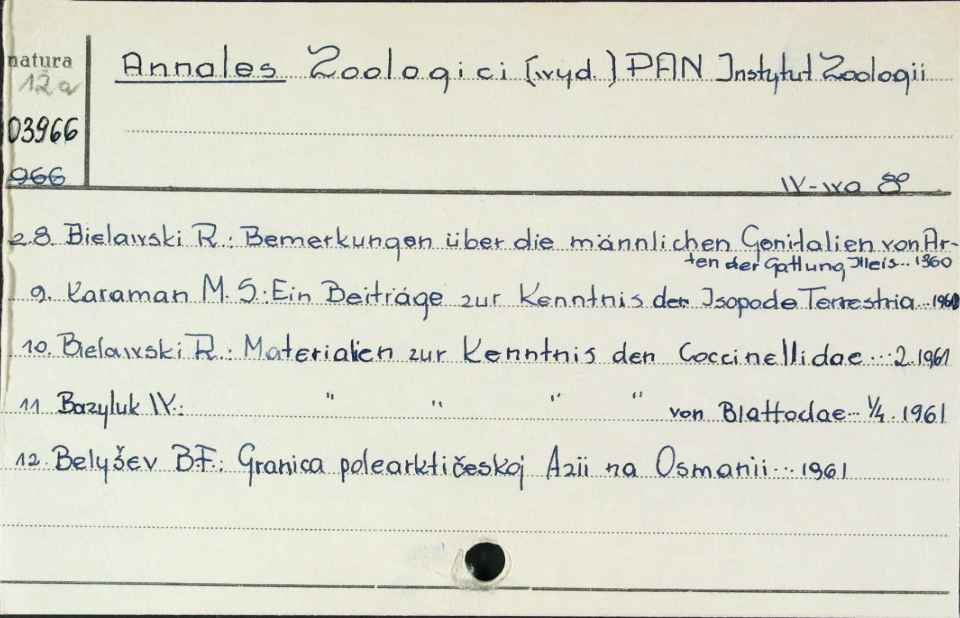 natura
12a
Annales Zoologici [wyd.] PAN Instytut Zoologii
03966
966
W-wa 8°
28. Bielawski R.: Bemerkungen über die männlichen Genitalien von Ar-
ten der Gattung Illeis... 1960
9. Karaman M. S.: Ein Beiträge zur Kenntnis der Isopode Terrestria... 1960
10. Bielawski R.: Materialien zur Kenntnis den Coccinellidae... 2. 1961
11 Bazyluk W.: " " " " von Blattodae... 1/4. 1961
12. Belyšev B.F.: Granica polearktičeskoj Azii na Osmanii... 1961